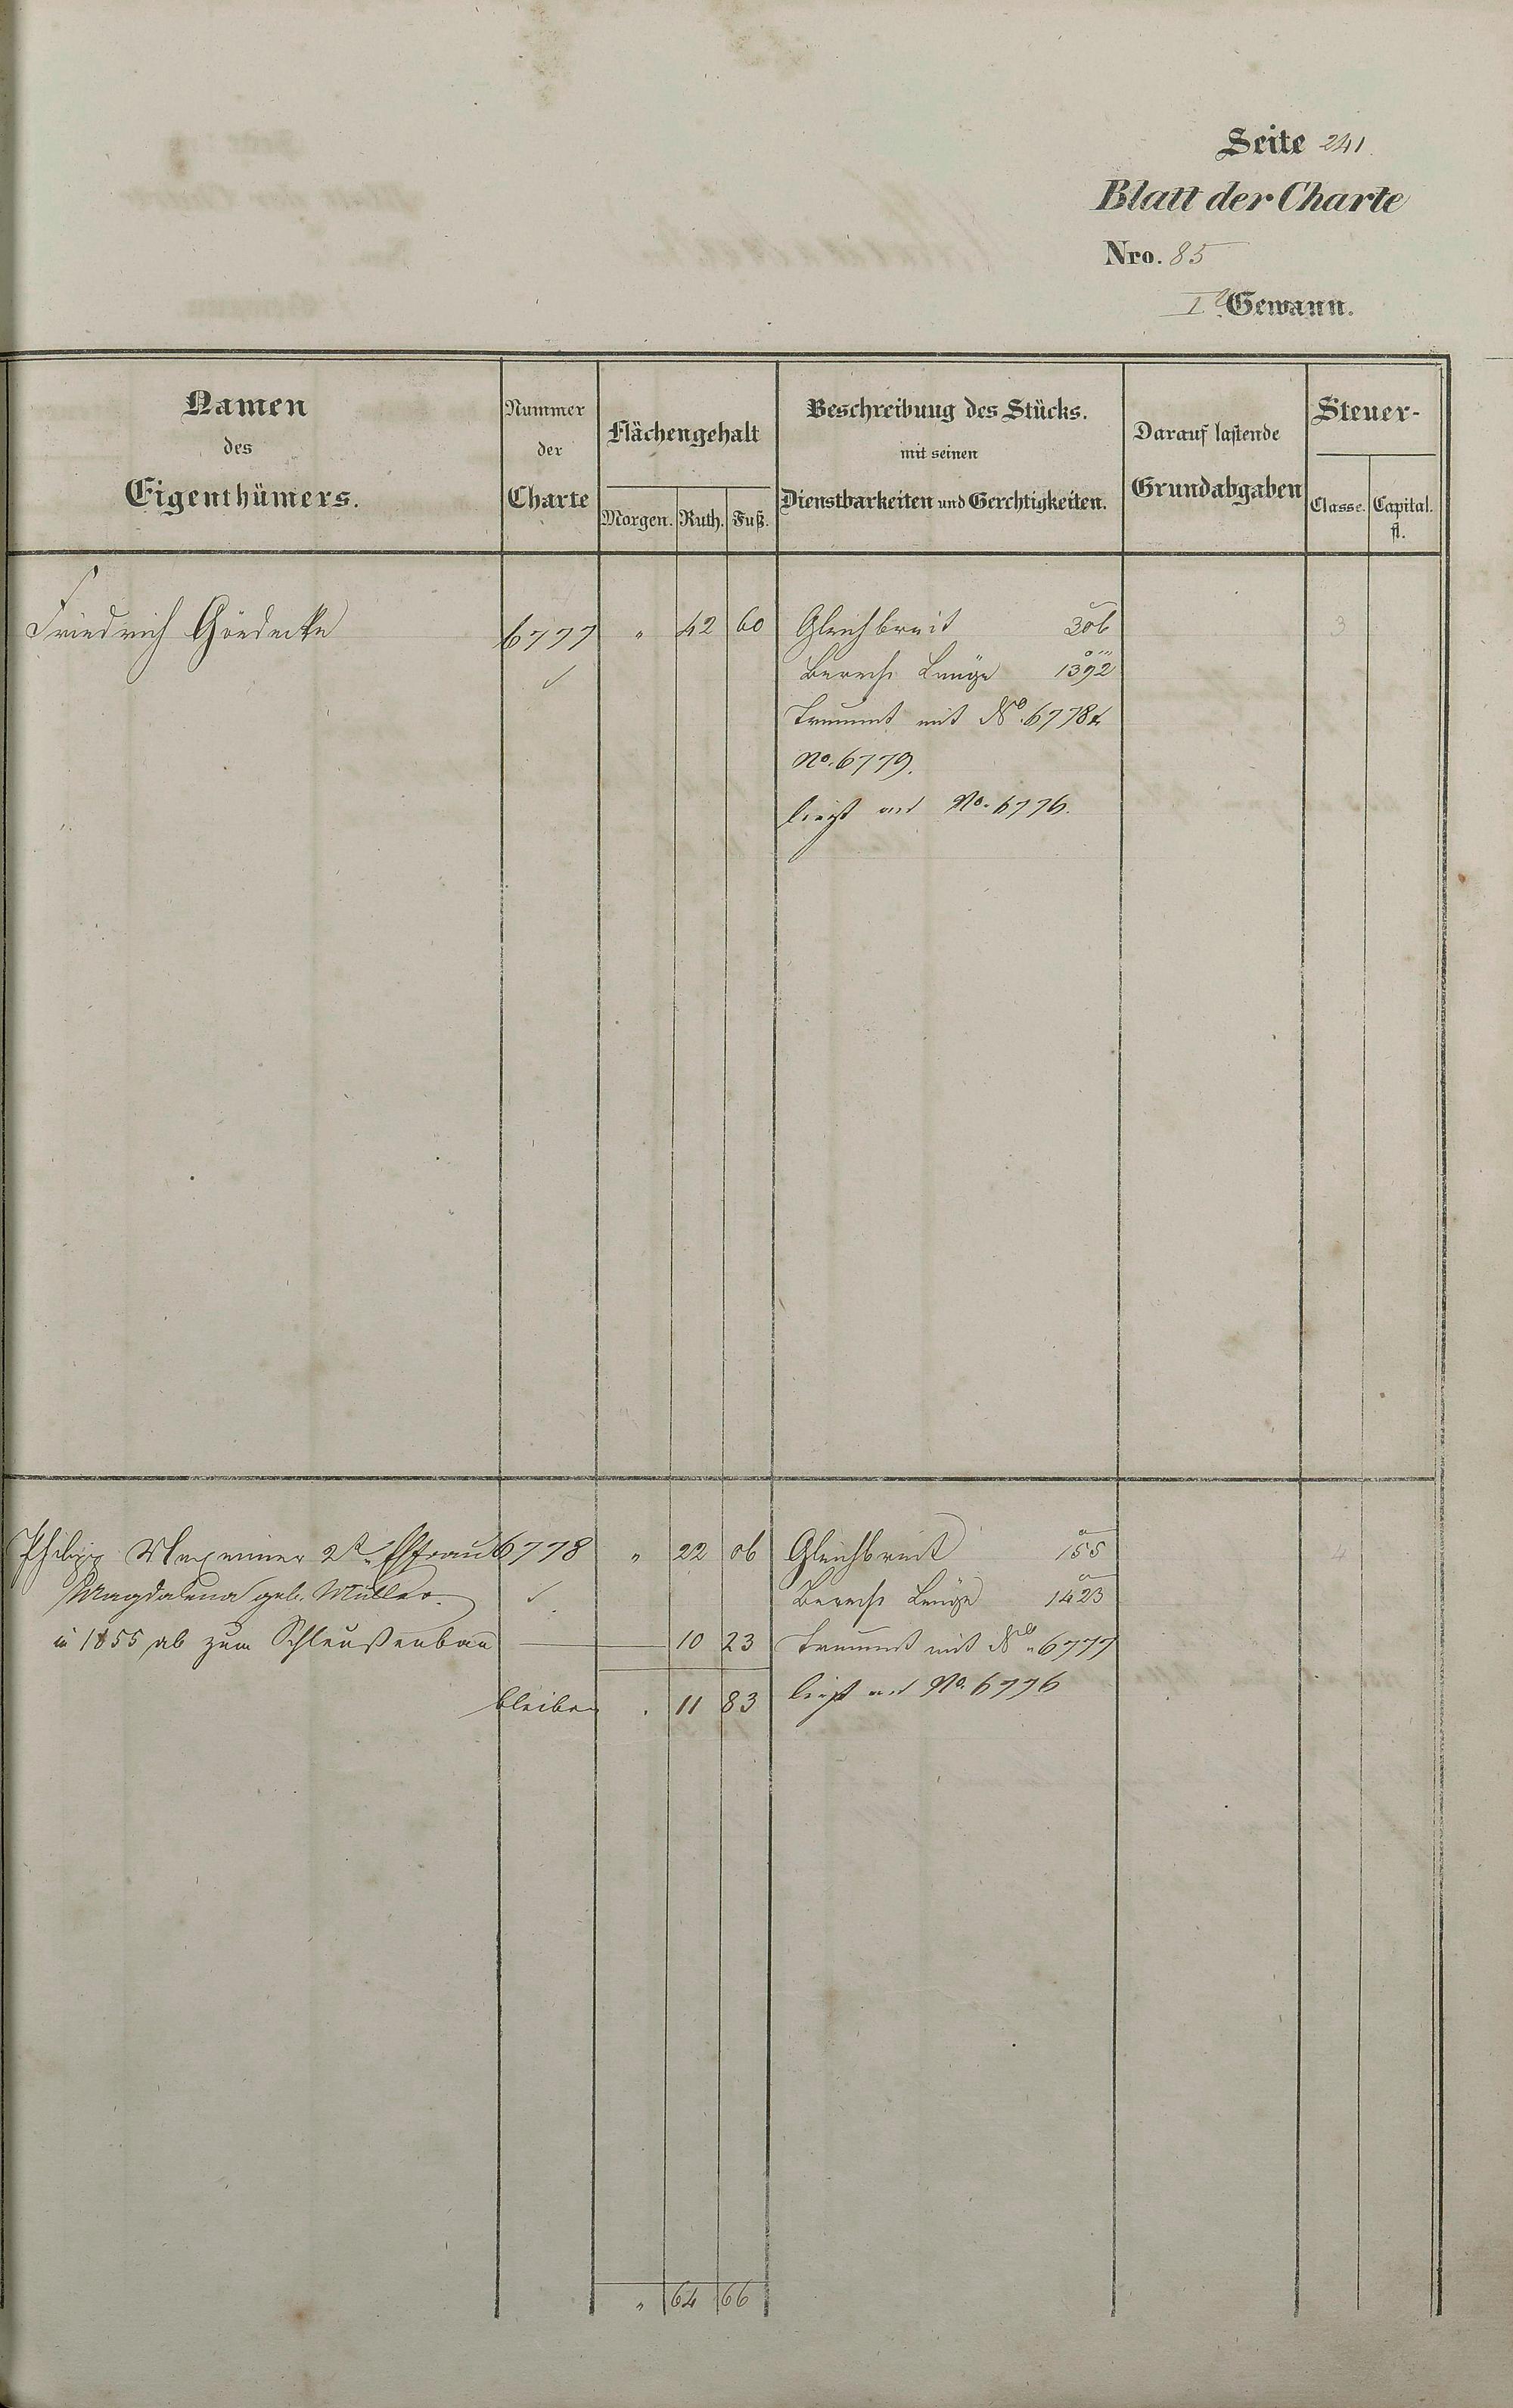 Seite 241
Blatt der Charte
Nro. 85
I. Gewann.
Namen des Eigenthümers.
Nummer der Charte
Flächengehalt
Morgen. Ruth. Fuß.
Beschreibung des Stücks. mit seinen Dienstbarkeiten und Gerechtigkeiten.
Darauf lastende Grundabgaben
Steuer-
Classe. Capital. fl.
Friedrich Gördecke 6777 " 42 60 Gleichbreit 306 3
Berech Länge 1392
Trummt mit No. 6778 &
No. 6779.
liegt an No. 6776.
Philipp 2r Ehefrau 6778 " 22 06 Gleichbreit 155 4
Magdalena geb. Müller. Berech Länge 1423
in 1855 ab zum Schleußenbau 10 23 Trummt mit No. 6777
bleiben . 11 83 liegt an No. 6776
" 64 66